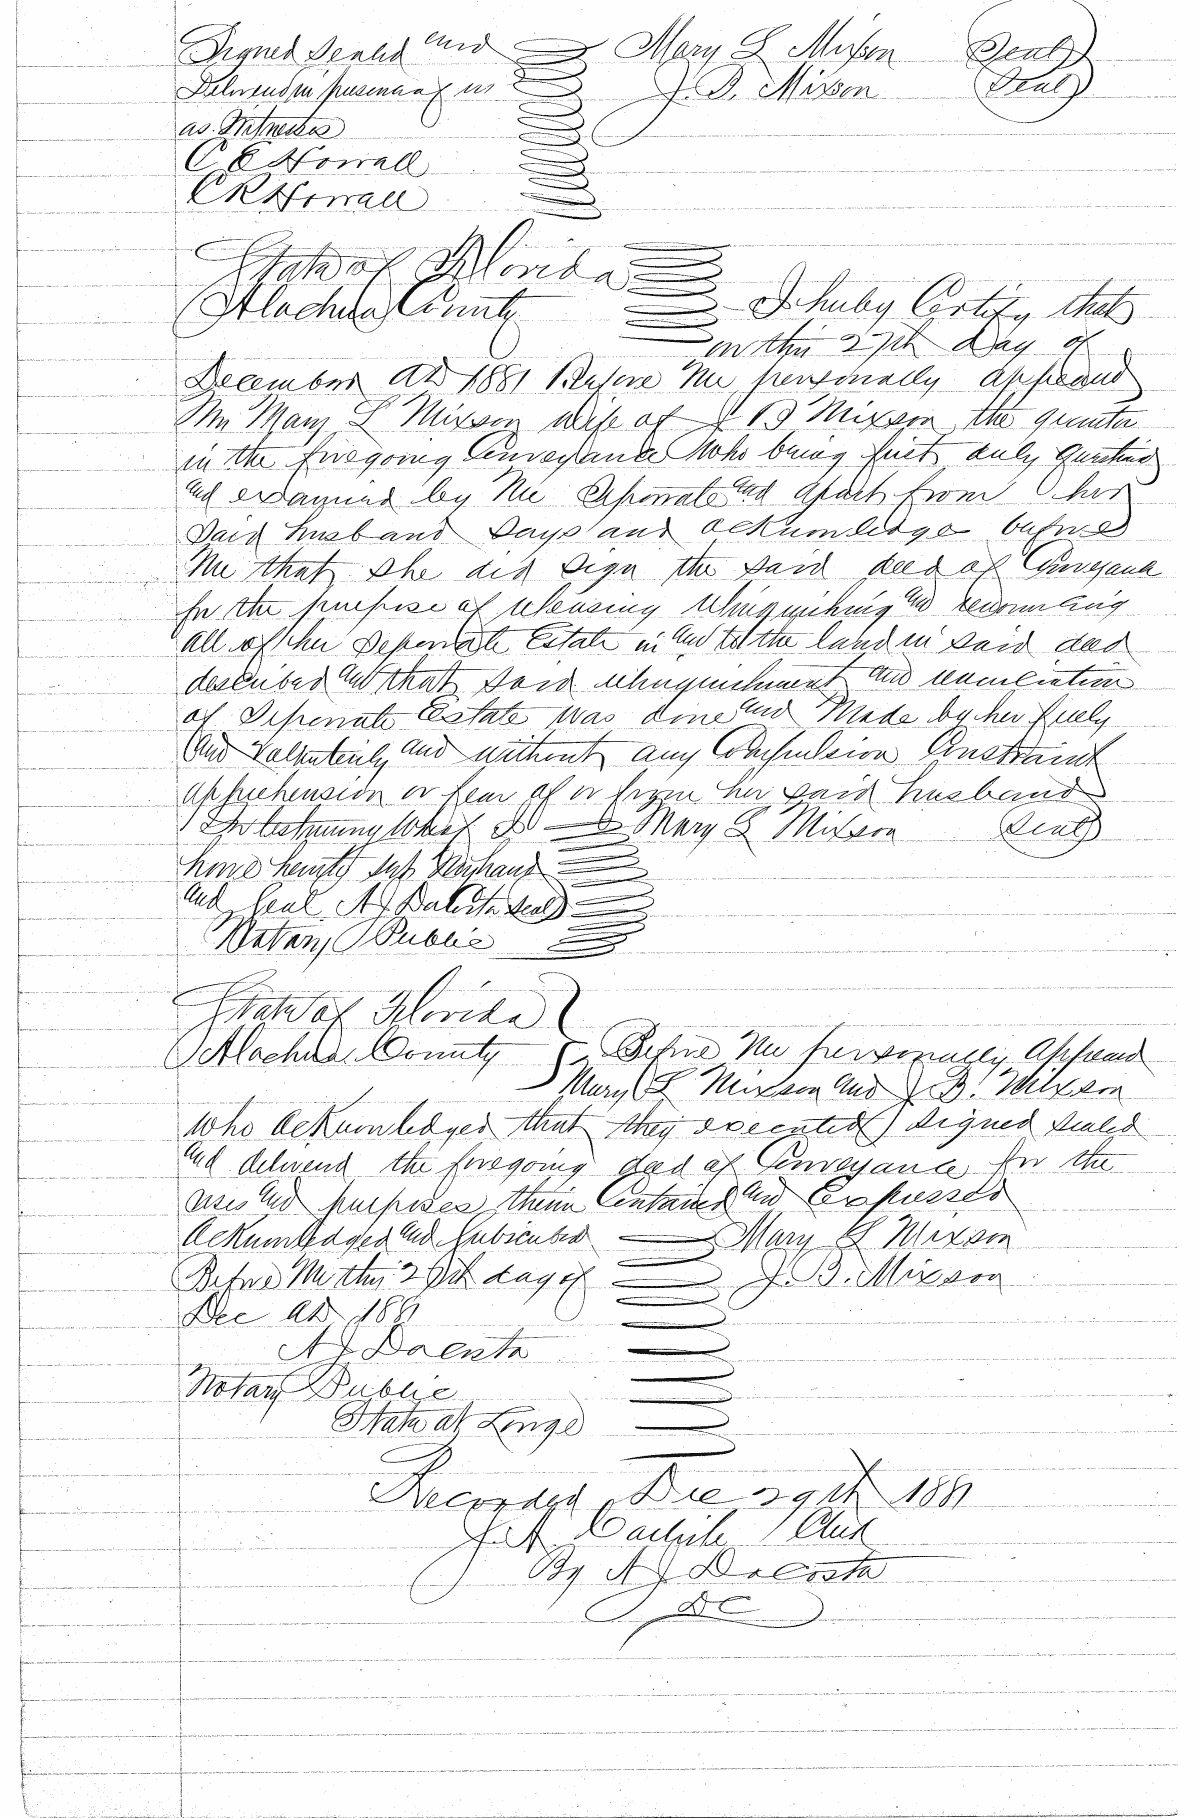 Signed Sealed and Mary L Mixson (Seal)
Delivered in presence of us J. B. Mixson (Seal)
as Witnesses
C E Howall
C R Howall
State of Florida
Alachua County I hereby Certify that
on this 27th Day of
December AD 1881 Before Me personally appeared
Mrs Mary L Mixson wife of J B Mixson the grantor
in the foregoing Conveyance Who being first duly questioned
and examined by Me Seperate and apart from her
Said husband Says and acknowledge before
Me that She did Sign the Said deed of Conveyance
for the purpose of releasing relinquishing and renouncing
all of her Seperate Estate in and to the land in Said deed
described and that Said relinquishment and renunciation
of Seperate Estate Was done and Made by her freely
and Voluntarily and without any Compulsion Constraint
apprehension or fear of or from her Said husband
In testimony Whereof I Mary L Mixson (Seal)
have hereunto set My hand
and Seal A J DaCosta (Seal)
Notary Public
State of Florida
Alachua County Before Me personally Appeared
Mary L Mixson and J. B. Mixson
Who acknowledged that they executed Signed Sealed
and delivered the foregoing deed of Conveyance for the
uses and purposes therein Contained and Expressed
Acknowledged and Subscribed Mary L Mixson
Before Me this 27th day of J. B. Mixson
Dec AD 1881
A J DaCosta
Notary Public
State at Large
Recorded Dec 29th 1881
J. A. Carlisle Clerk
By A J DaCosta
DC